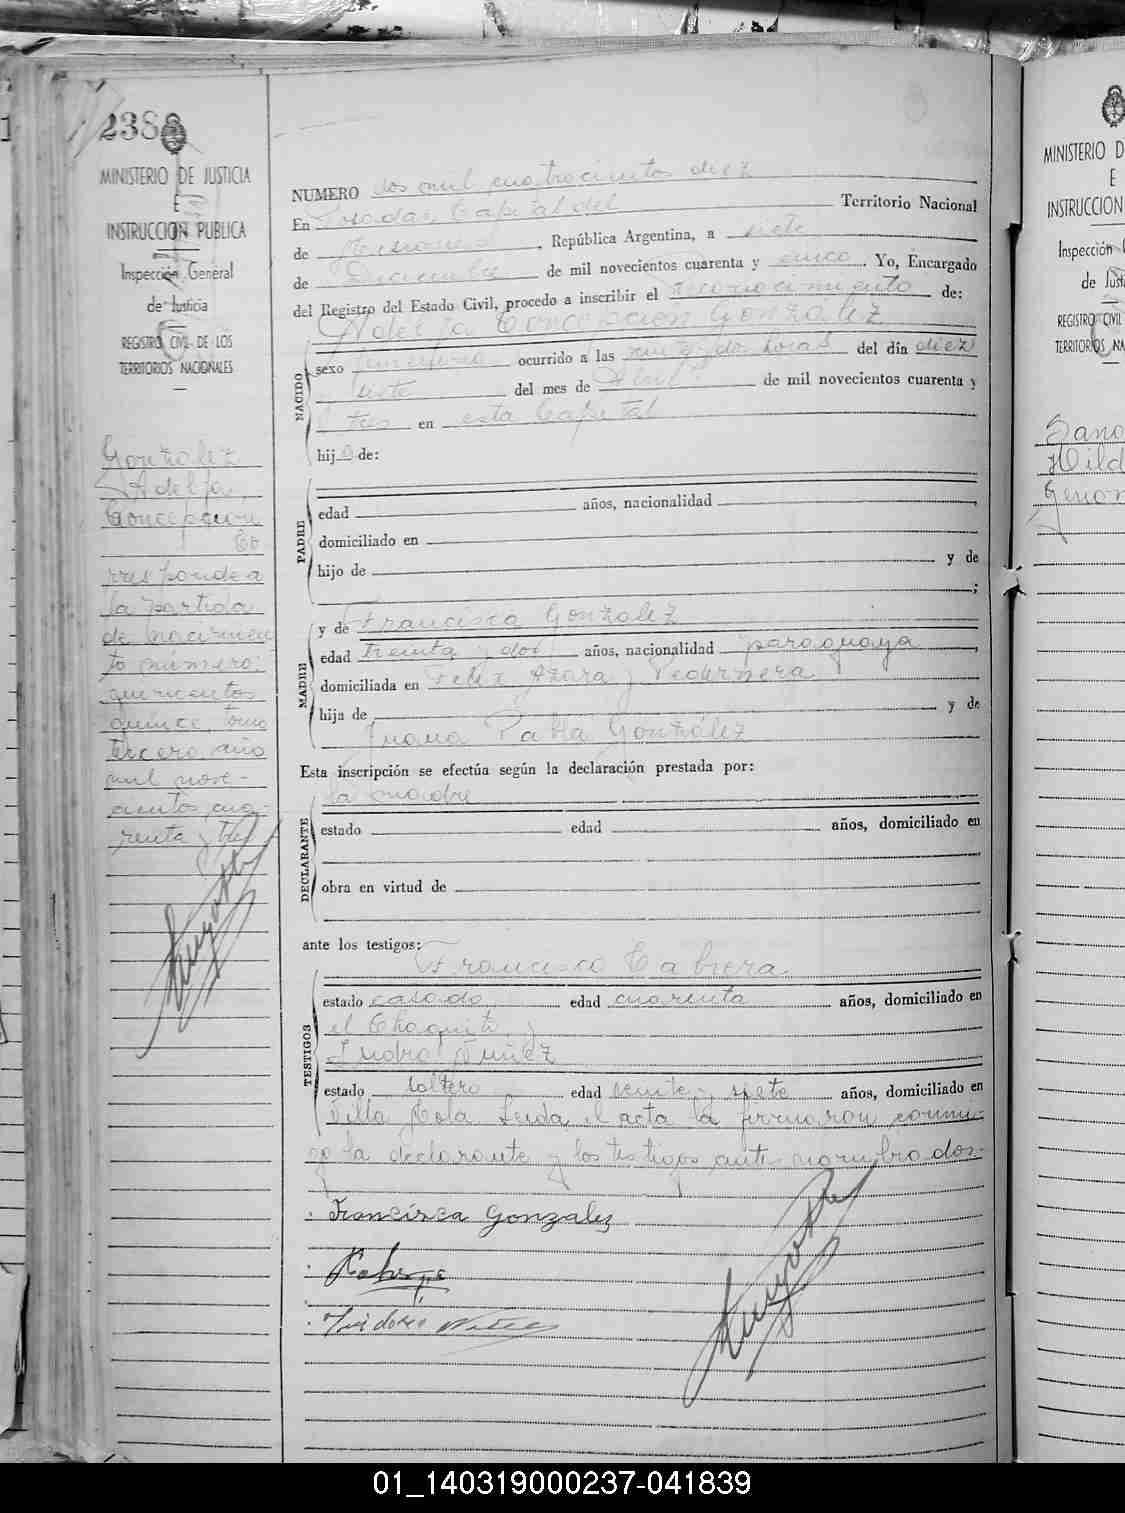 238
MINISTERIO DE JUSTICIA
E
INSTRUCCION PUBLICA
Inspección General
de Justicia
REGISTRO CIVIL DE LOS
TERRITORIOS NACIONALES
Gonzalez
Adelfa
Concepcion
Co
rresponde a
la partida
de nacimien
to número:
quinientos
quince, tomo
tercero, año
mil nove-
cientos cua-
renta y tres
NUMERO dos mil cuatrocientos diez
En Posadas Capital del Territorio Nacional
de Misiones, República Argentina, a siete
de Diciembre de mil novecientos cuarenta y cinco. Yo, Encargado
del Registro del Estado Civil, procedo a inscribir el reconocimiento de:
Adelfa Concepcion Gonzalez
NACIDO
sexo femenino ocurrido a las veinte y dos horas del día diez
y siete del mes de Abril de mil novecientos cuarenta y
tres en esta Capital
hija de:
PADRE
edad años, nacionalidad
domiciliado en
hijo de y de
;
MADRE
y de Francisca Gonzalez
edad treinta y dos años, nacionalidad paraguaya,
domiciliada en Felix Azara y Pedernera
hija de y de
Juana Pabla González
Esta inscripción se efectúa según la declaración prestada por:
la madre
DECLARANTE
estado edad años, domiciliado en
obra en virtud de
ante los testigos:
Francisco Cabrera
TESTIGOS
estado casado edad cuarenta años, domiciliado en
el Chaquito y
Isidro Nuñez
estado soltero edad veinte y siete años, domiciliado en
Villa Lola Leida el acta la firmaron conmi-
go la declarante y los testigos ante nombrados.-
Francisca Gonzalez
Isidoro
MINISTERIO D
E
INSTRUCCION
Inspección
de Just
REGISTRO CIVIL
TERRITORIOS NA
Hild
01_140319000237-041839